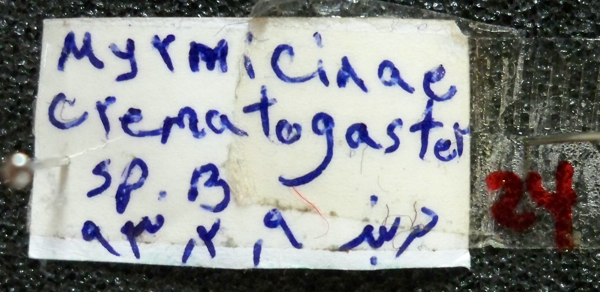 Myrmicinae
crematogaster
sp. B
۹۳,۲,۹
24